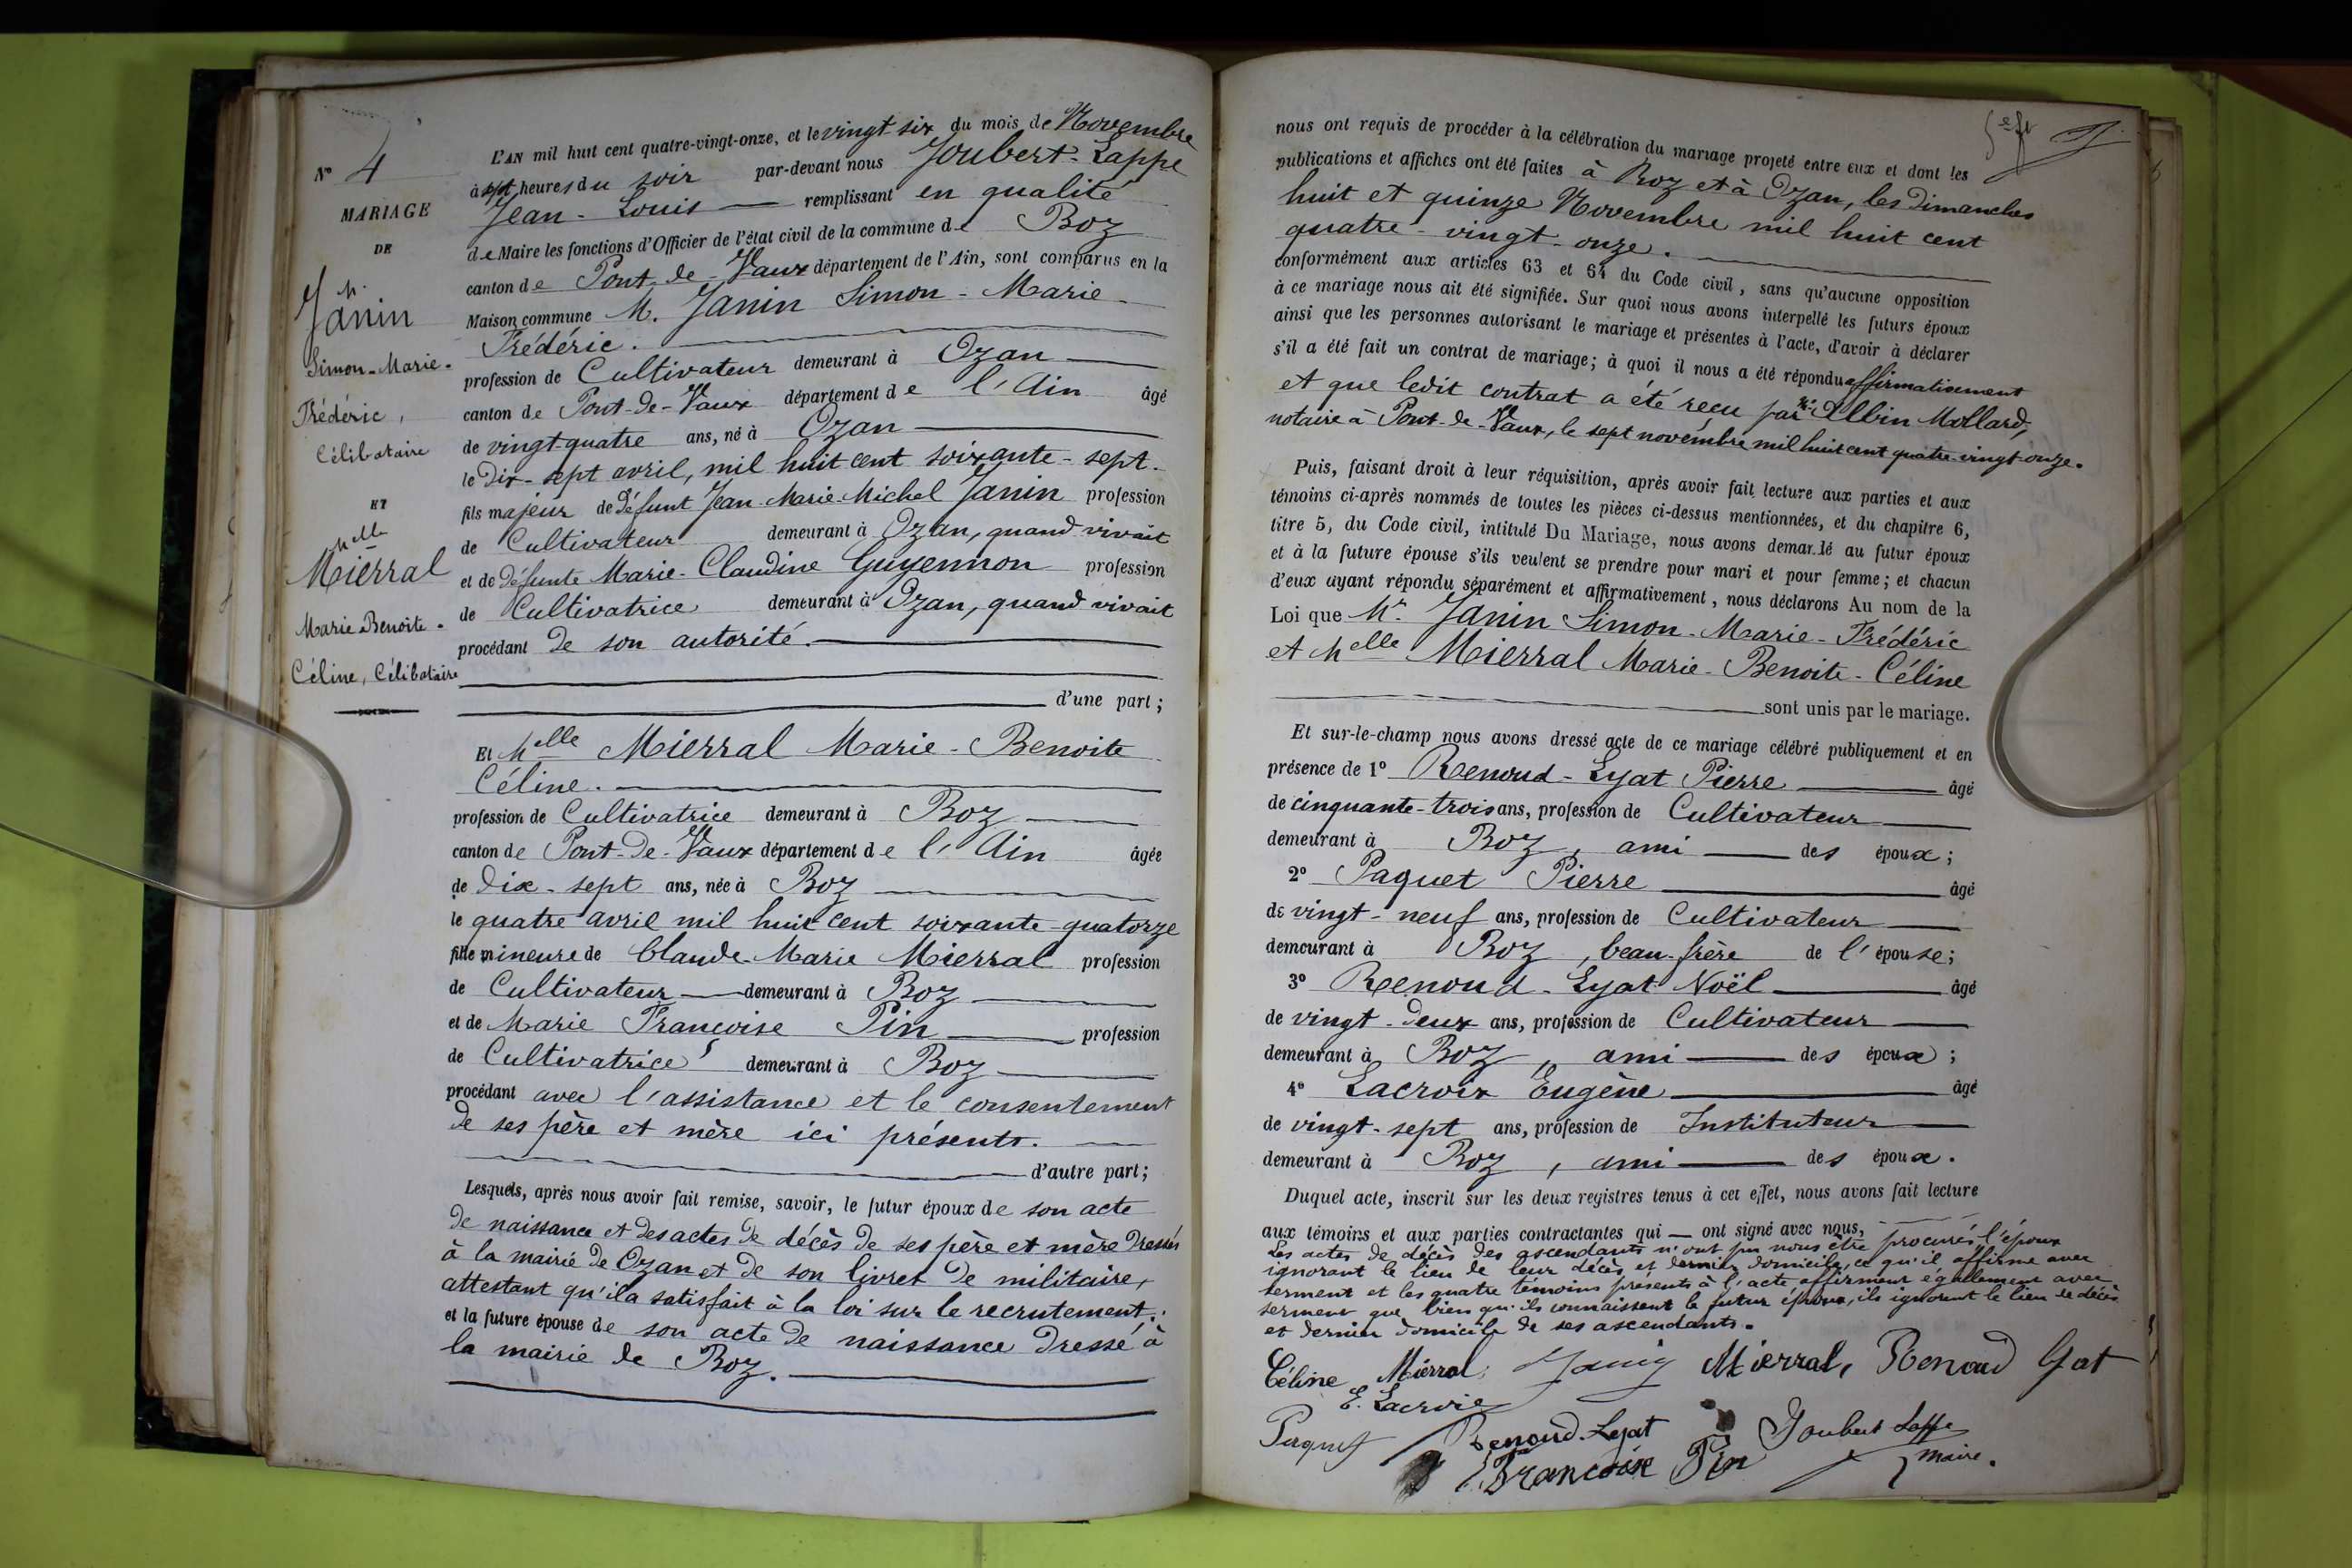 N° 4
MARIAGE
DE
Mr.
Janin
Simon-Marie-
Frédéric,
Célibataire
ET
Melle
Mierral
Marie Benoite-
Céline, Célibataire
L'AN mil huit cent quatre-vingt-onze, et le vingt-six du mois de Novembre
à sept heures du soir par-devant nous Joubert-Lappe
Jean-Louis — remplissant en qualité
de Maire les fonctions d'Officier de l'état civil de la commune de Boz
canton de Pont-de-Vaux département de l'Ain, sont comparus en la
Maison commune M. Janin Simon-Marie-
Frédéric.
profession de Cultivateur demeurant à Ozan
canton de Pont-de-Vaux département de l'Ain âgé
de vingt-quatre ans, né à Ozan
le dix-sept avril, mil huit cent soixante-sept.
fils majeur de défunt Jean-Marie-Michel Janin profession
de Cultivateur demeurant à Ozan, quand vivait
et de défunte Marie-Claudine Guyennon profession
de Cultivatrice demeurant à Ozan, quand vivait
procédant de son autorité.
d'une part;
Et Melle Mierral Marie-Benoite
Céline.
profession de Cultivatrice demeurant à Boz
canton de Pont-de-Vaux département de l'Ain âgée
de dix-sept ans, née à Boz
le quatre avril mil huit cent soixante-quatorze
fille mineure de Claude-Marie Mierral profession
de Cultivateur — demeurant à Boz
et de Marie Françoise Pin profession
de Cultivatrice demeurant à Boz
procédant avec l'assistance et le consentement
de ses père et mère ici présents.
d'autre part;
Lesquels, après nous avoir fait remise, savoir, le futur époux de son acte
de naissance et des actes de décès de ses père et mère dressés
à la mairie de Ozan et de son livret de militaire,
attestant qu'il a satisfait à la loi sur le recrutement;
et la future épouse de son acte de naissance dressé à
la mairie de Boz.
nous ont requis de procéder à la célébration du mariage projeté entre eux et dont les
publications et affiches ont été faites à Boz et à Ozan, les dimanches
huit et quinze Novembre mil huit cent
quatre-vingt-onze.
conformément aux articles 63 et 64 du Code civil, sans qu'aucune opposition
à ce mariage nous ait été signifiée. Sur quoi nous avons interpellé les futurs époux
ainsi que les personnes autorisant le mariage et présentes à l'acte, d'avoir à déclarer
s'il a été fait un contrat de mariage; à quoi il nous a été répondu affirmativement
et que ledit contrat a été reçu par Me Albin Mollard,
notaire à Pont-de-Vaux, le sept novembre mil huit cent quatre-vingt-onze.
Puis, faisant droit à leur réquisition, après avoir fait lecture aux parties et aux
témoins ci-après nommés de toutes les pièces ci-dessus mentionnées, et du chapitre 6,
titre 5, du Code civil, intitulé Du Mariage, nous avons demandé au futur époux
et à la future épouse s'ils veulent se prendre pour mari et pour femme; et chacun
d'eux ayant répondu séparément et affirmativement, nous déclarons Au nom de la
Loi que Mr. Janin Simon-Marie-Frédéric
et Melle Mierral Marie-Benoite-Céline
sont unis par le mariage.
Et sur-le-champ nous avons dressé acte de ce mariage célébré publiquement et en
présence de 1° Renoud-Lyat Pierre âgé
de cinquante-trois ans, profession de Cultivateur
demeurant à Boz, ami — des époux;
2° Paquet Pierre âgé
de vingt-neuf ans, profession de Cultivateur
demeurant à Boz, beau-frère de l'épouse;
3° Renoud-Lyat Noël âgé
de vingt-deux ans, profession de Cultivateur
demeurant à Boz, ami — des époux;
4° Lacroix Eugène âgé
de vingt-sept ans, profession de Instituteur
demeurant à Boz, ami — des époux.
Duquel acte, inscrit sur les deux registres tenus à cet effet, nous avons fait lecture
aux témoins et aux parties contractantes qui — ont signé avec nous,
Les actes de décès des ascendants n'ont pu nous être procurés l'époux
ignorant le lieu de leur décès et dernier domicile, ce qu'il affirme avec
serment et les quatre témoins présents à l'acte affirment également avec
serment que bien qu'ils connaissent le futur époux, ils ignorent le lieu de décès
et dernier domicile de ses ascendants.
Céline Mierral Janin Mierral, Renoud Lyat
E. Lacroix
Paquet Renoud-Lyat Joubert Lappe
Francoise Pin maire.